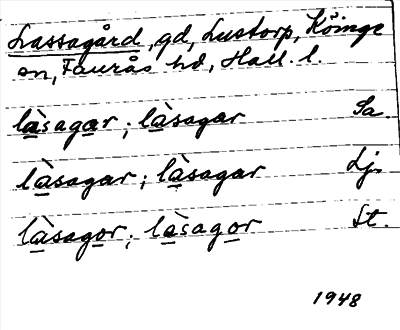 Lassagård, gd, Lustorp, Köinge
sn, Faurås hd, Hall. l.
là̲saga̲r ; là̲sagar Sa.
là̲sagar ; là̲sagar Lj.
là̲sago̲r ; là̲sago̲r St.
1948